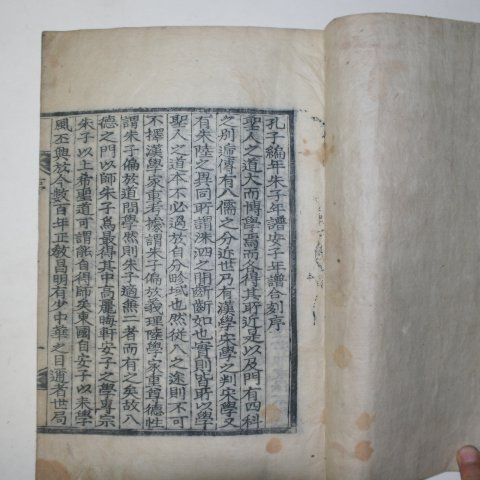 孔子編年朱子年譜安子年譜合刻序
聖人之道大而博學焉而各得其所近是以及門有四科
之別流傳有八儒之分近世乃有漢學宋學之判宋學又
有朱陸之異同所謂洙泗之間斷斷如也實則皆所以學
聖人之道本不必過放自分畛域也然從入之途則不可
不擇漢學家重考據謂朱子偏放義理陸學家重尊德性
謂朱子偏放道問學然則朱子適無二者而有之矣故入
德之門以師朱子爲最得其中高麗晦軒安子之學專宗
朱子以上希聖道可謂能自得師矣東國自安子以來學
風丕興放今數百年正敎昌明有少中華之目邇者世局